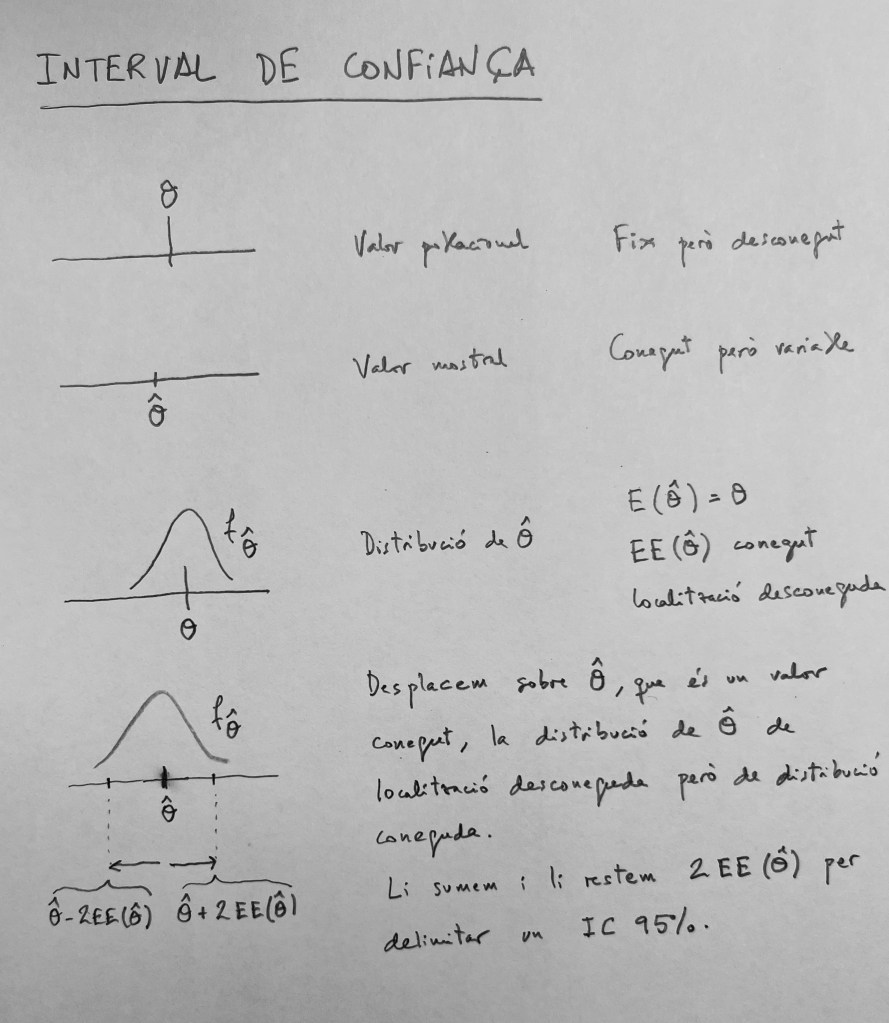 INTERVAL DE CONFIANÇA
θ
Valor poblacional Fix però desconegut
Valor mostral Conegut però variable
θ̂
E(θ̂) = θ
f_θ̂ Distribució de θ̂ EE(θ̂) conegut
localització desconeguda
θ
Desplacem sobre θ̂, que és un valor
f_θ̂ conegut, la distribució de θ̂ de
θ̂ localització desconeguda però de distribució
coneguda.
Li sumem i li restem 2EE(θ̂) per
θ̂-2EE(θ̂) θ̂+2EE(θ̂)
delimitar un IC 95%.